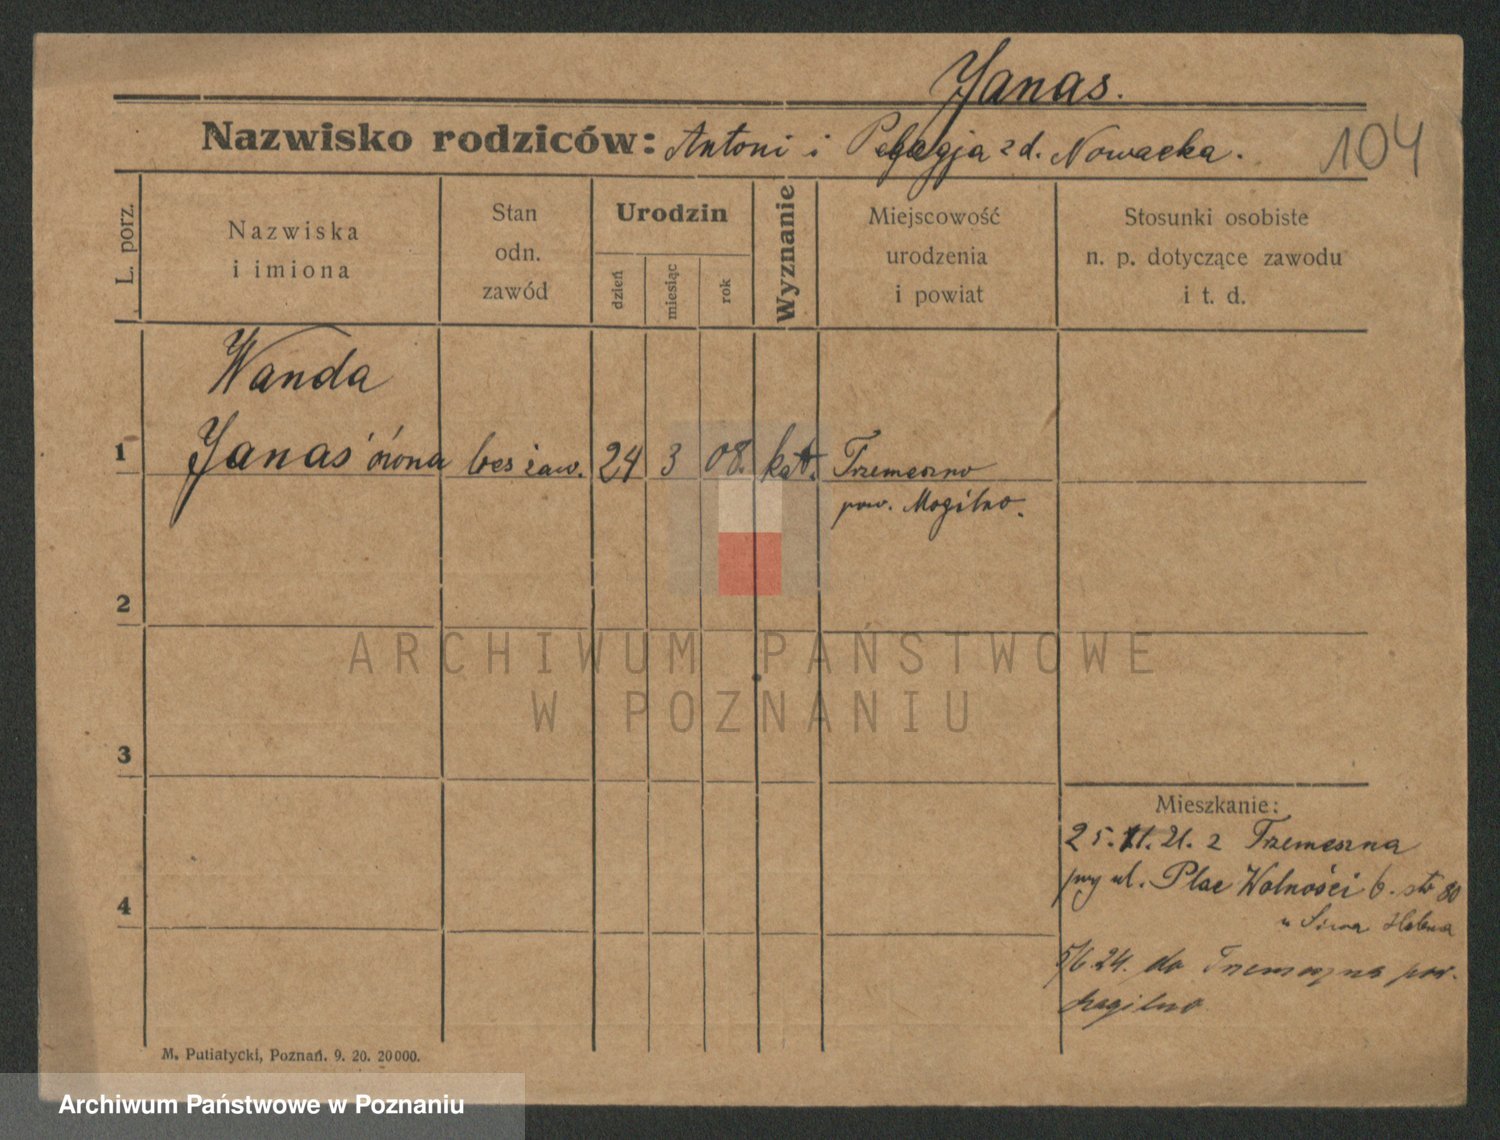 Janas.
Nazwisko rodziców: Antoni i Pelagja z d. Nowacka.
104
L. porz.
Nazwiska
i imiona
Stan
odn.
zawód
Urodzin
dzień
miesiąc
rok
Wyznanie
Miejscowość
urodzenia
i powiat
Stosunki osobiste
n. p. dotyczące zawodu
i t. d.
Wanda
1 Janas'ówna bez zaw. 24 3 08. kat. Trzemeszno
pow. Mogilno.
2
ARCHIWUM PAŃSTWOWE
W POZNANIU
3
Mieszkanie:
25. 11. 21. z Trzemeszna
przy ul. Plac Wolności 6. str 80
u Helena
4
5/6 24. do Trzemeszna pow.
Mogilno
M. Putiatycki, Poznań. 9. 20. 20000.
Archiwum Państwowe w Poznaniu